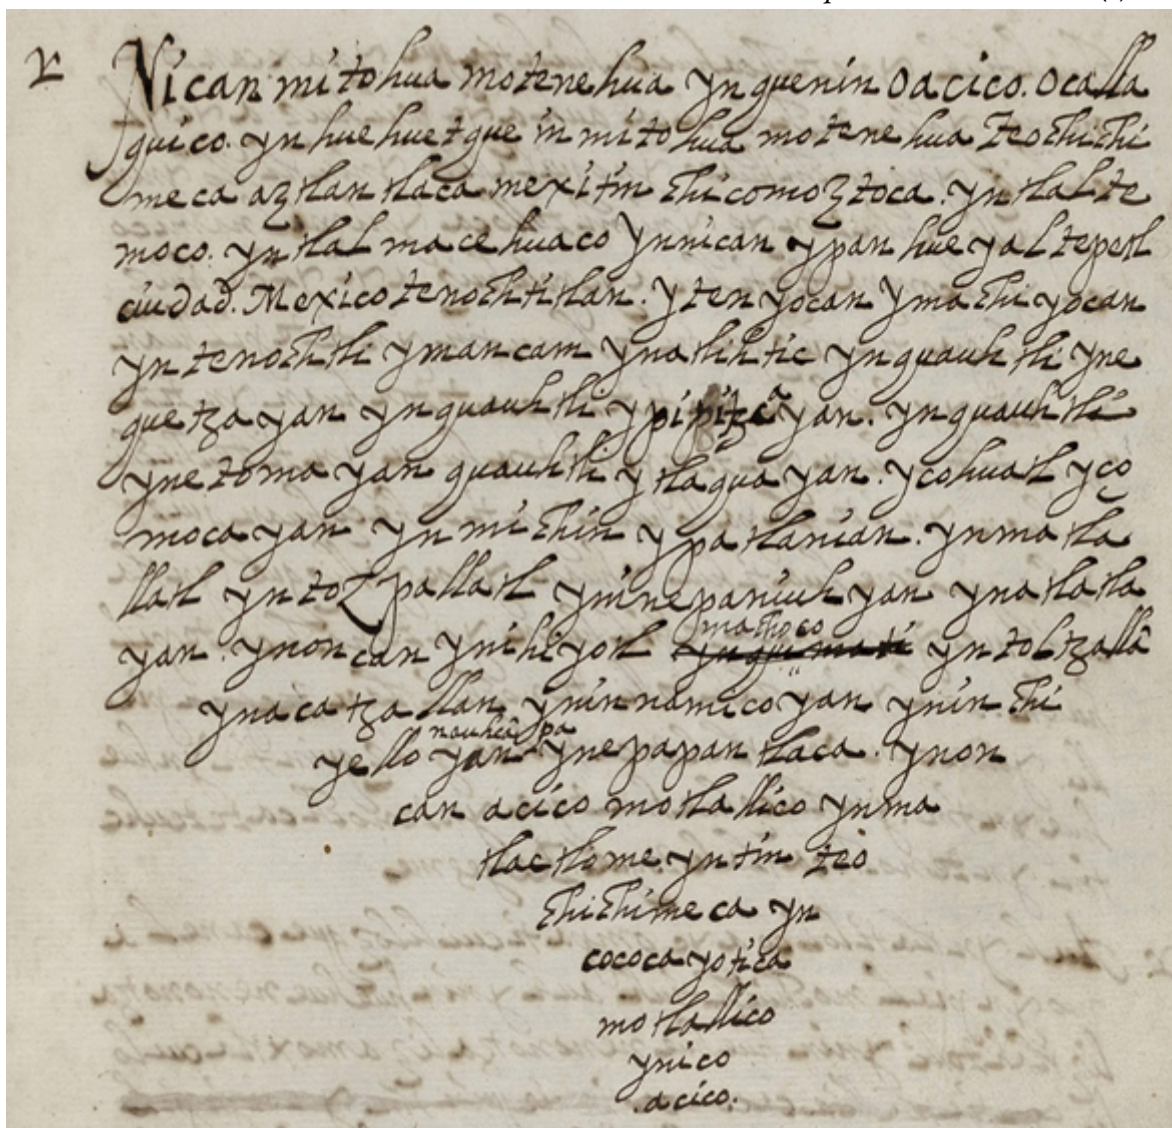 Nican mitohua motenehua yn quenin oacico. ocalla
quico. yn huehuetque in mitohua motenehua teochichi
meca aztlan tlaca mexitin chicomoztoca. yn tlalte
moco. yn tlalmacehuaco yn nican ypan huey altepetl
ciudad. Mexico tenochtitlan. ytenyocan ymachiyocan
yn tenochtli ymancam ynatlihtic yn quauhtli yne
quetzayan yn quauhtli ypipitzcayan. yn quauhtli
ynetomayan quauhtli ytlaquayan. ycohuatl yço
mocayan yn michin ypatlanian. yn matla
llatl yn tozpallatl yninepaniuhyan ynatlatla
yan. ynoncan ynihiyotl machoco yn toltzallã
ynacatzallan yninnamicoyan ynin chi
yelloyan nauhcãpa ynepapan tlaca. ynon
can acico motlallico yn ma
tlactlome. yntin teo
chichimeca yn
cococayotica
motlallico
ynico
acico.